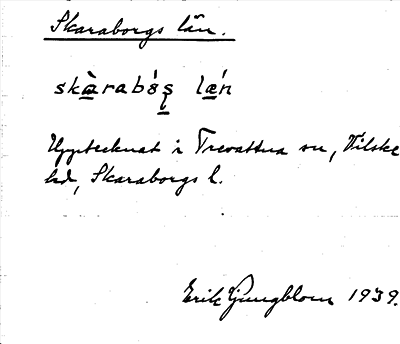 Skaraborgs län.
skàrabó̤s lǽn
Upptecknat i Trevattna sn, Vilske
hd, Skaraborgs l.
Erik Ljungblom 1939.